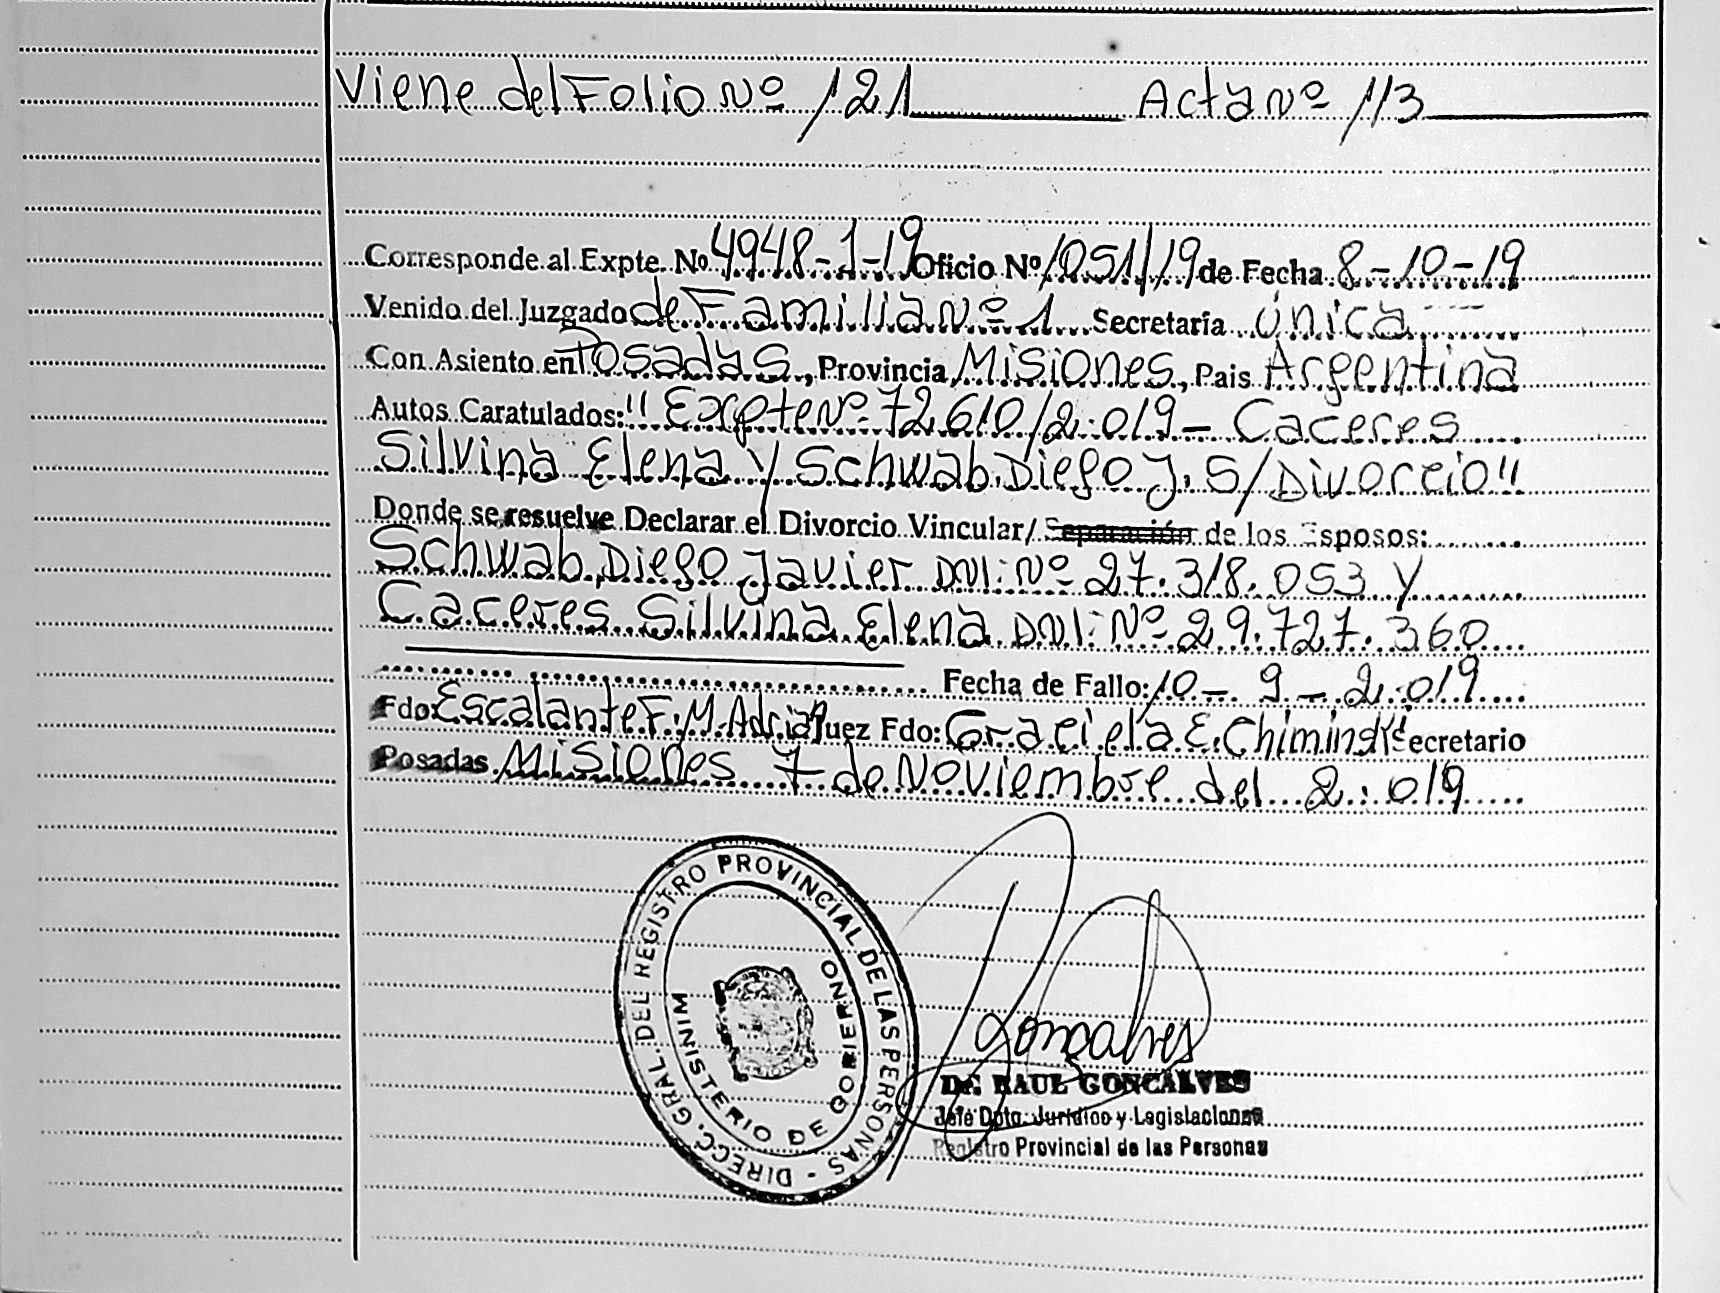 Viene del Folio Nº 121 Acta Nº 113
Corresponde al Expte. Nº 4948-1-19 Oficio Nº 1051/19 de Fecha 8-10-19
Venido del Juzgado de Familia Nº 1 Secretaría Única
Con Asiento en Posadas, Provincia Misiones, Pais Argentina
Autos Caratulados: "Expte Nº 72610/2.019 - Caceres
Silvina Elena y Schwab Diego J. S/Divorcio"
Donde se resuelve Declarar el Divorcio Vincular/ Separación de los Esposos:
Schwab, Diego Javier DNI: Nº 27.318.053 y
Caceres Silvina Elena DNI: Nº 29.727.360
Fecha de Fallo: 10-9-2.019
Fdo: Escalante F. M. Adrian Juez Fdo: Graciela E. Chiminski Secretario
Posadas Misiones 7 de Noviembre del 2.019
DIRECC. GRAL. DEL REGISTRO PROVINCIAL DE LAS PERSONAS -
MINISTERIO DE GOBIERNO
Goncalves
Dr. RAUL GONCALVES
Jefe Dpto. Jurídico y Legislaciones
Registro Provincial de las Personas